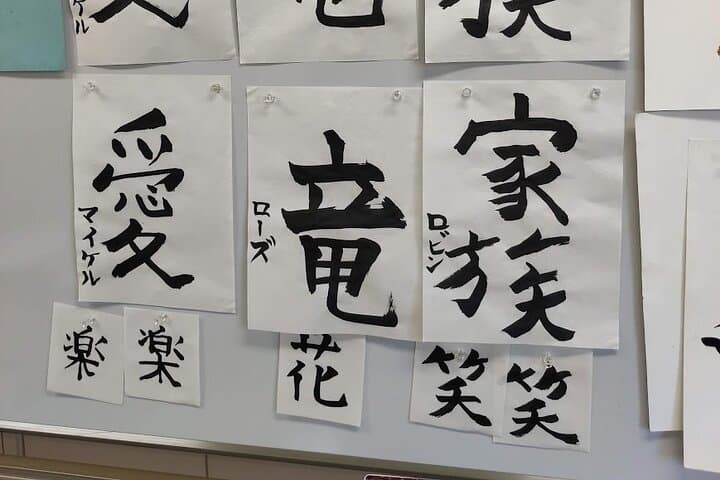 愛
マイケル
竜
ローズ
家族
ロビン
楽
楽
花
笑
笑